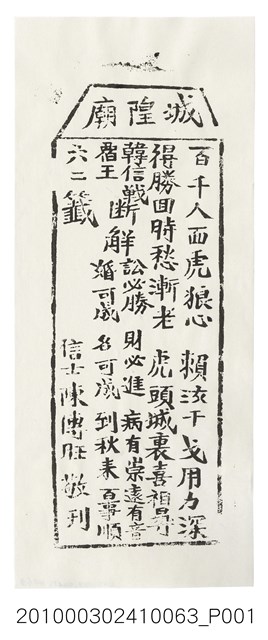 城隍廟
百千人面虎狼心 賴汝干戈用力深
得勝回時愁漸老 虎頭城裏喜相尋
韓信戰覇王
斷解
訟必勝 財必進 病有崇 遠有音
婚可成 名可成 到秋來 百事順
六二籤 信士陳傳旺敬刊
201000302410063_P001